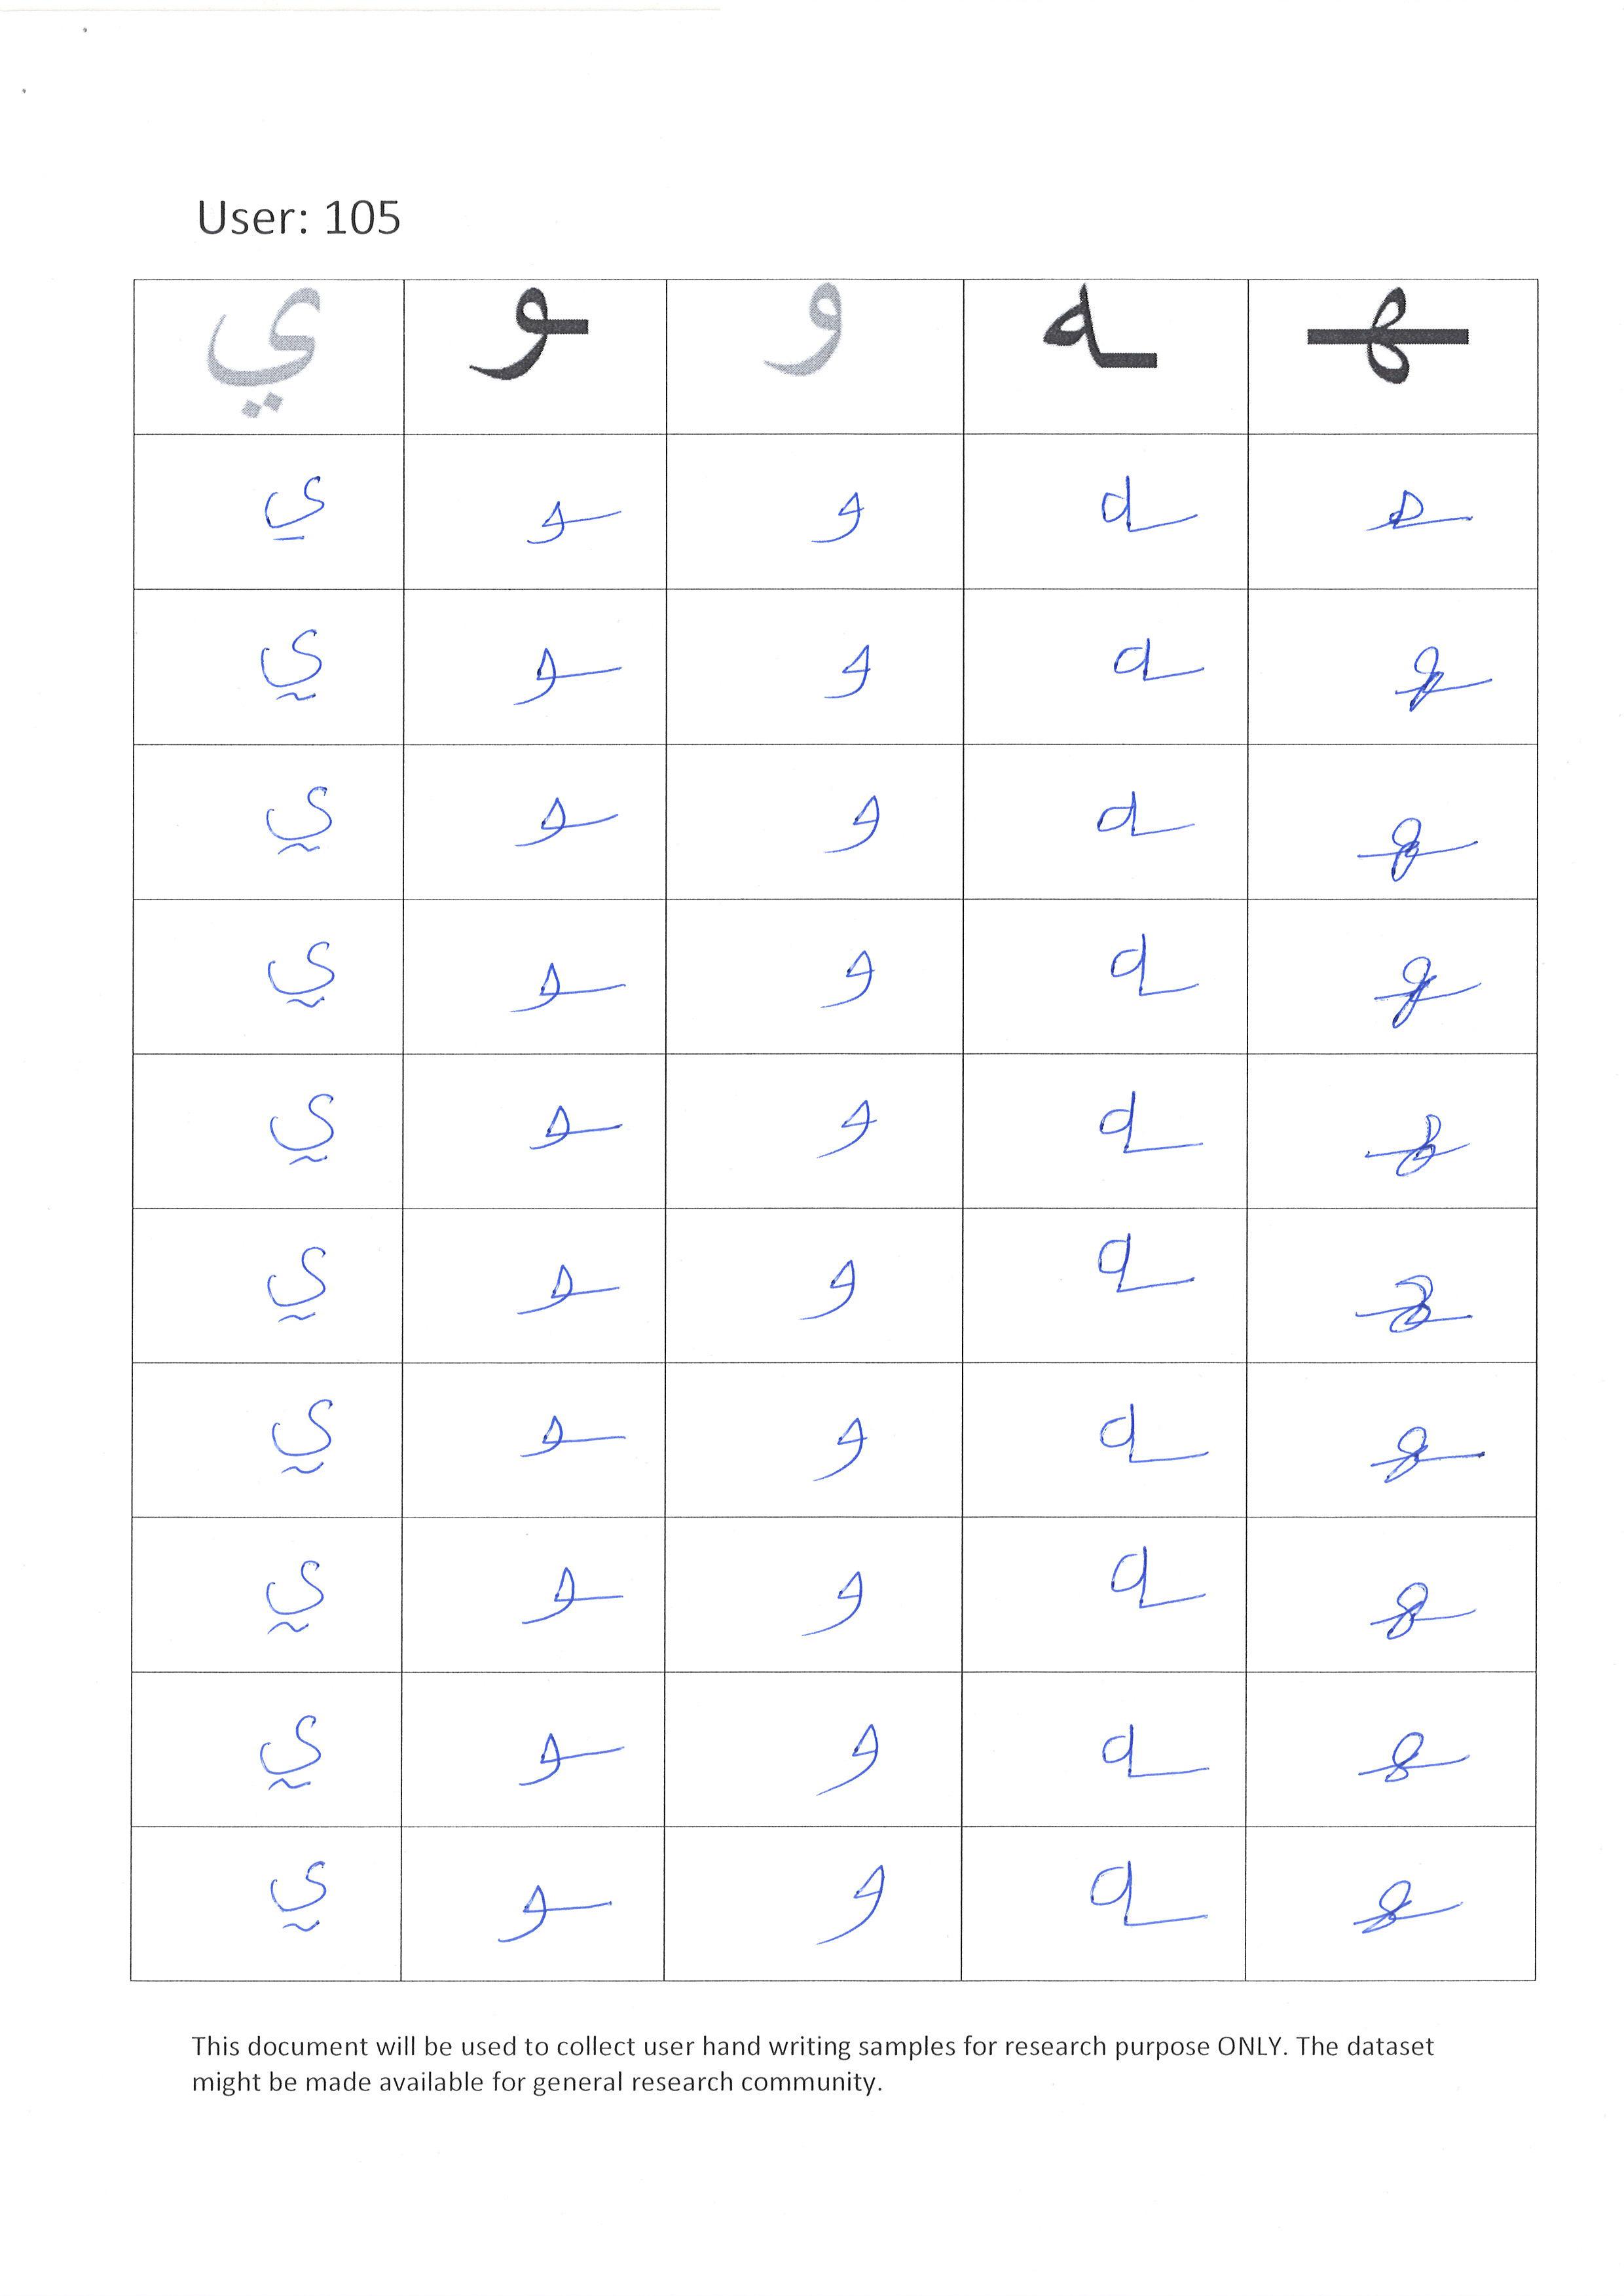 User: 105
ي ـو و ـه ـهـ
ي ـو و ـه ـهـ
ي ـو و ـه ـهـ
ي ـو و ـه ـهـ
ي ـو و ـه ـهـ
ي ـو و ـه ـهـ
ي ـو و ـه ـهـ
ي ـو و ـه ـهـ
ي ـو و ـه ـهـ
ي ـو و ـه ـهـ
ي ـو و ـه ـهـ
This document will be used to collect user hand writing samples for research purpose ONLY. The dataset
might be made available for general research community.